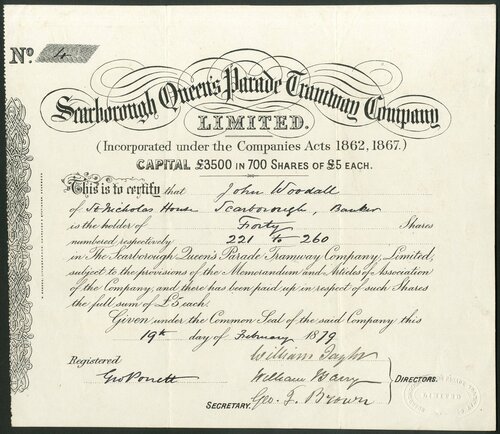 No. 4
Scarborough Queen's Parade Tramway Company
LIMITED.
(Incorporated under the Companies Acts 1862, 1867.)
CAPITAL £3500 IN 700 SHARES OF £5 EACH.
This is to certify that John Woodall
of St Nicholas House Scarborough, Banker
is the holder of Forty Shares
numbered respectively 221 to 260
in The Scarborough Queen's Parade Tramway Company, Limited,
subject to the provisions of the Memorandum and Articles of Association
of the Company, and there has been paid up in respect of such Shares
the full sum of £5 each.
Given under the Common Seal of the said Company this
19th day of February 1879
Registered
William
William
Geo. L. Brown
DIRECTORS.
SECRETARY.
LIMITED